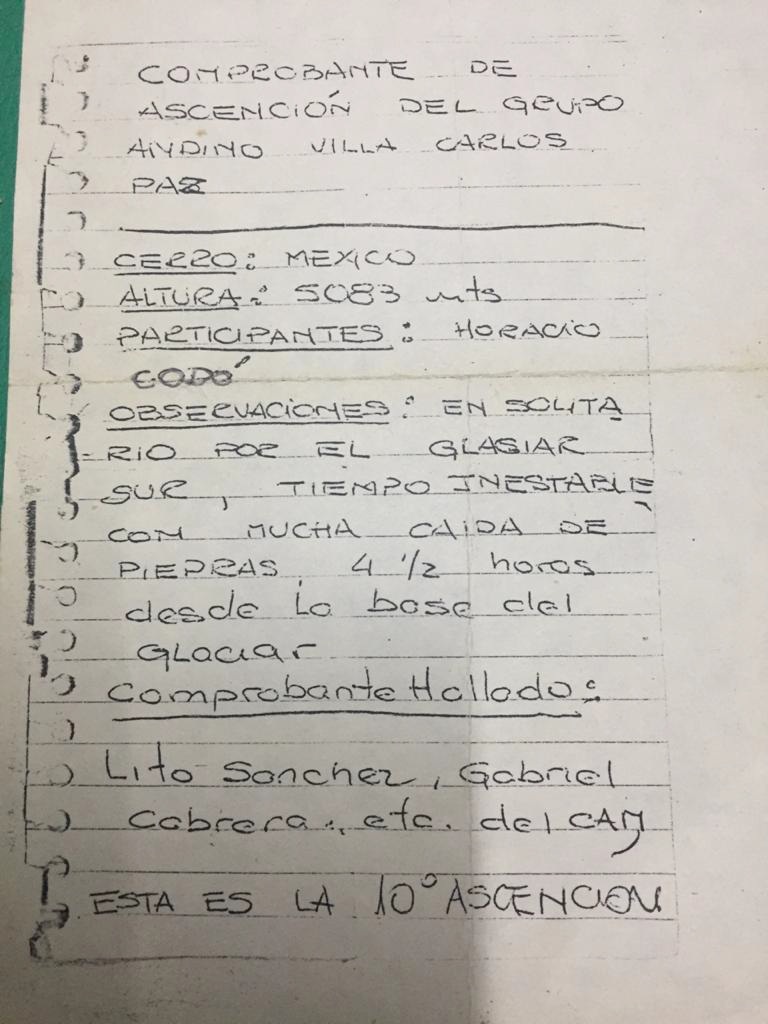 COMPROBANTE DE
ASCENCIÓN DEL GRUPO
ANDINO VILLA CARLOS
PAZ
CERRO: MEXICO
ALTURA: 5083 mts
PARTICIPANTES: HORACIO
CODÓ
OBSERVACIONES: EN SOLITA
RIO POR EL GLASIAR
SUR, TIEMPO INESTABLE
CON MUCHA CAIDA DE
PIEDRAS, 4 1/2 horas
desde la base del
GLaciar
Comprobante Hallado:
Lito Sanchez, Gabriel
Cabrera., etc. del CAM
ESTA ES LA 10° ASCENCION